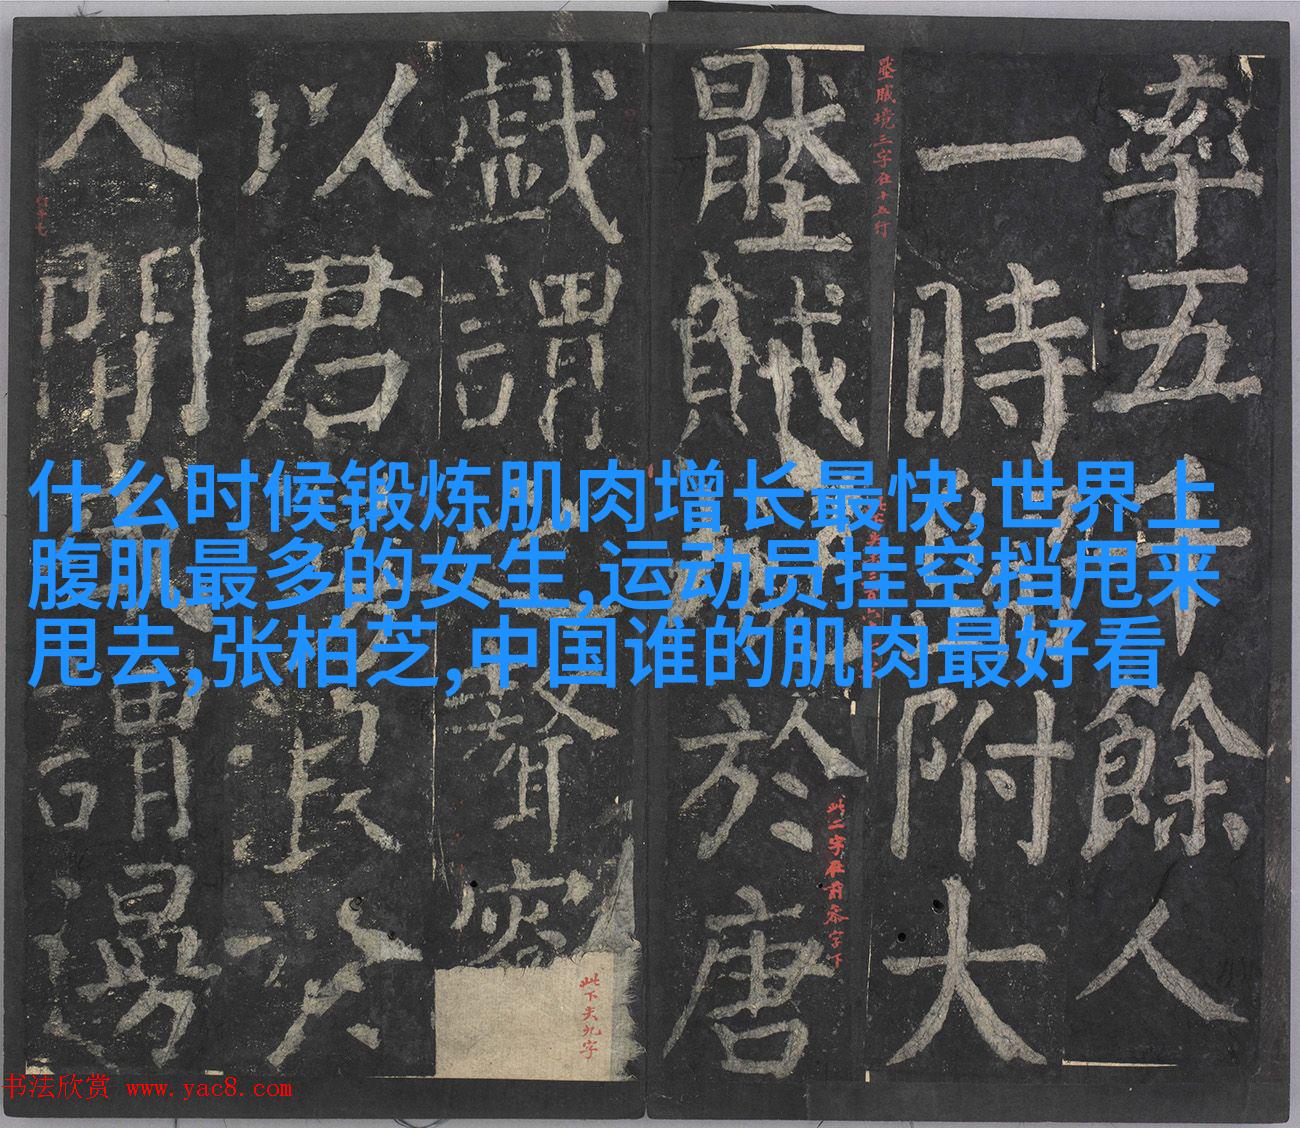 什么时候锻炼肌肉增长最快,世界上
腹肌最多的女生,运动员挂空挡甩来
甩去,张柏芝,中国谁的肌肉最好看
率五千餘人
一時
附大
壓賊
於唐
戲謂
聲容
以君
浪於
人聞
謂
壓賊境三字在十五行
此下失九字
书法欣赏 www.yac8.com